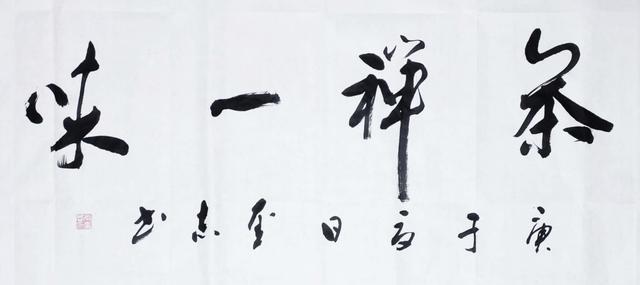 茶禅一味
庚子夏日志书